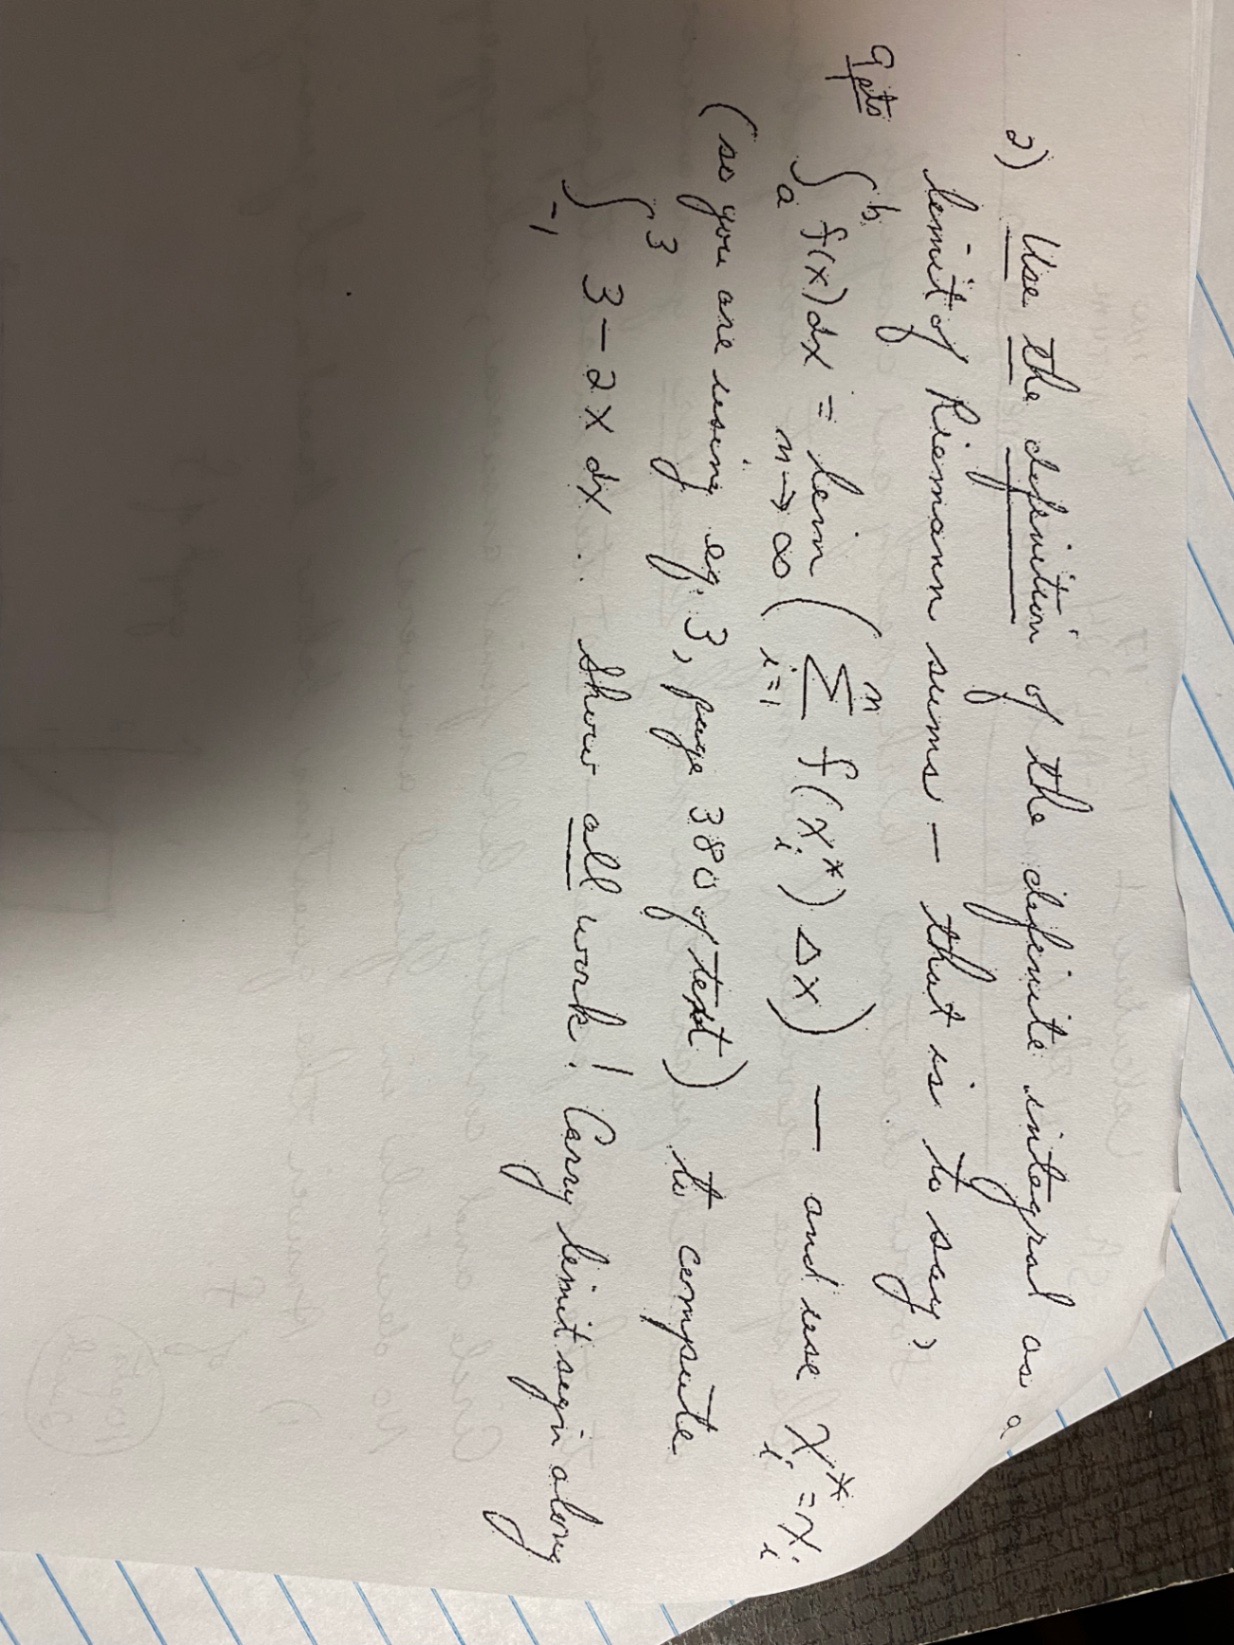 2) Use the definition of the definite integral as a
limit of Riemann sums — that is to say,
9pts ∫_a^b f(x)dx = lim_{n→∞} ( ∑_{i=1}^n f(x_i^*) Δx ) — and use x_i^* = x_i
(so you are using eq. 3, page 380 of text) to compute
∫_{-1}^3 3 - 2x dx. Show all work! Carry limit sign along